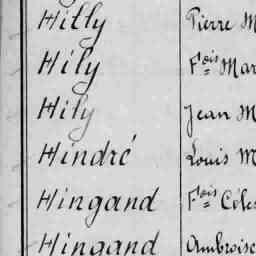 Hilly Pierre M
Hily Fois Mar
Hily Jean M
Hindré Louis M
Hingand Fois Céles
Hingand Ambroise